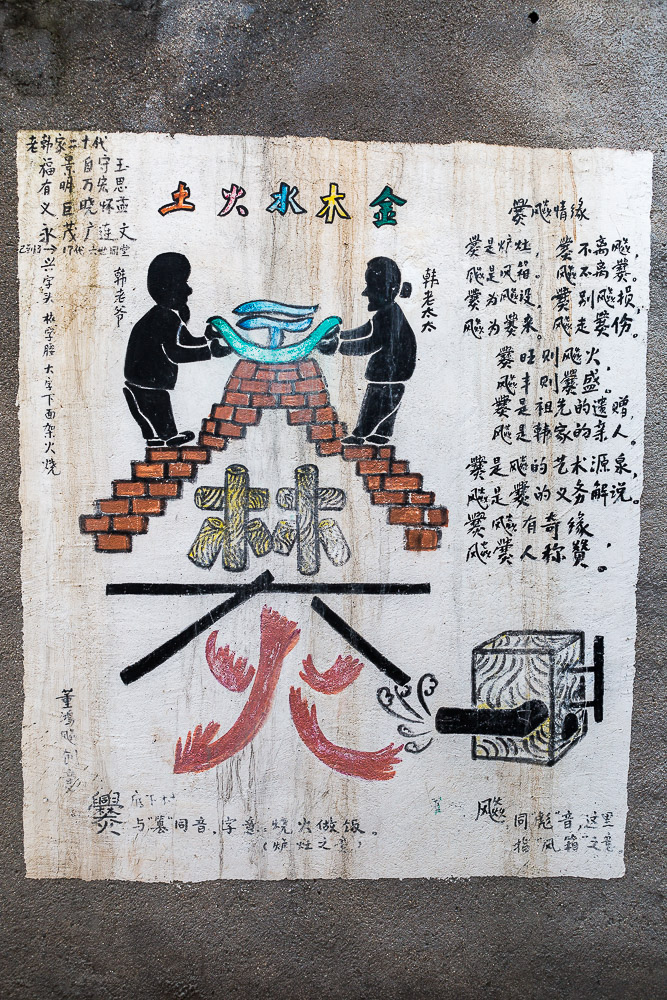 老韩家二十代
福景自守玉
有明万宏思
义臣晓怀孟
永茂广连文
17代 六世同堂
兴字头 林字腰 大字下面架火烧
金木水火土
韩老爷
韩老太太
爨飚情缘
爨是炉灶, 爨不离飚,
飚是风箱。 飚不离爨。
爨为飚设, 爨别飚损,
飚为爨来。 飚走爨份。
爨旺则飚火,
飚丰则爨盛。
爨是祖先的遗赠,
飚是韩家的亲人。
爨是飚的艺术源泉,
飚是爨的义务解说。
爨飚有奇缘
飚爨有人称赞。
林
大
火
董鸿飚创意
爨 底下村
与"篡"同音,字意:烧火做饭。
(炉灶之意)
飚,同"彪"音,这里
指"风箱"之意。